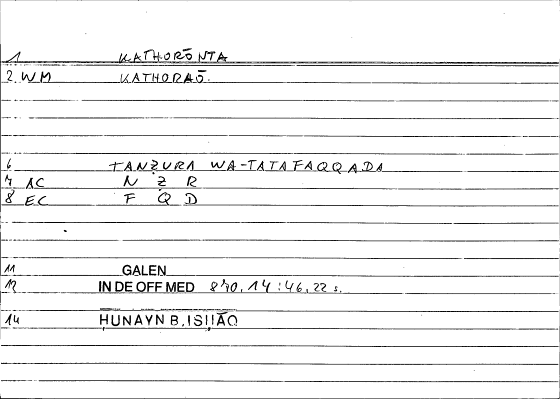 1 KATHORŌNTA
2 WM KATHORAŌ.
6 TANẒURA WA-TATAFAQQADA
7 AC N Ẓ R
8 EC F Q D
11 GALEN
12 IN DE OFF MED 870, 14 : 46, 22 s.
14 ḤUNAYN B. ISḤĀQ